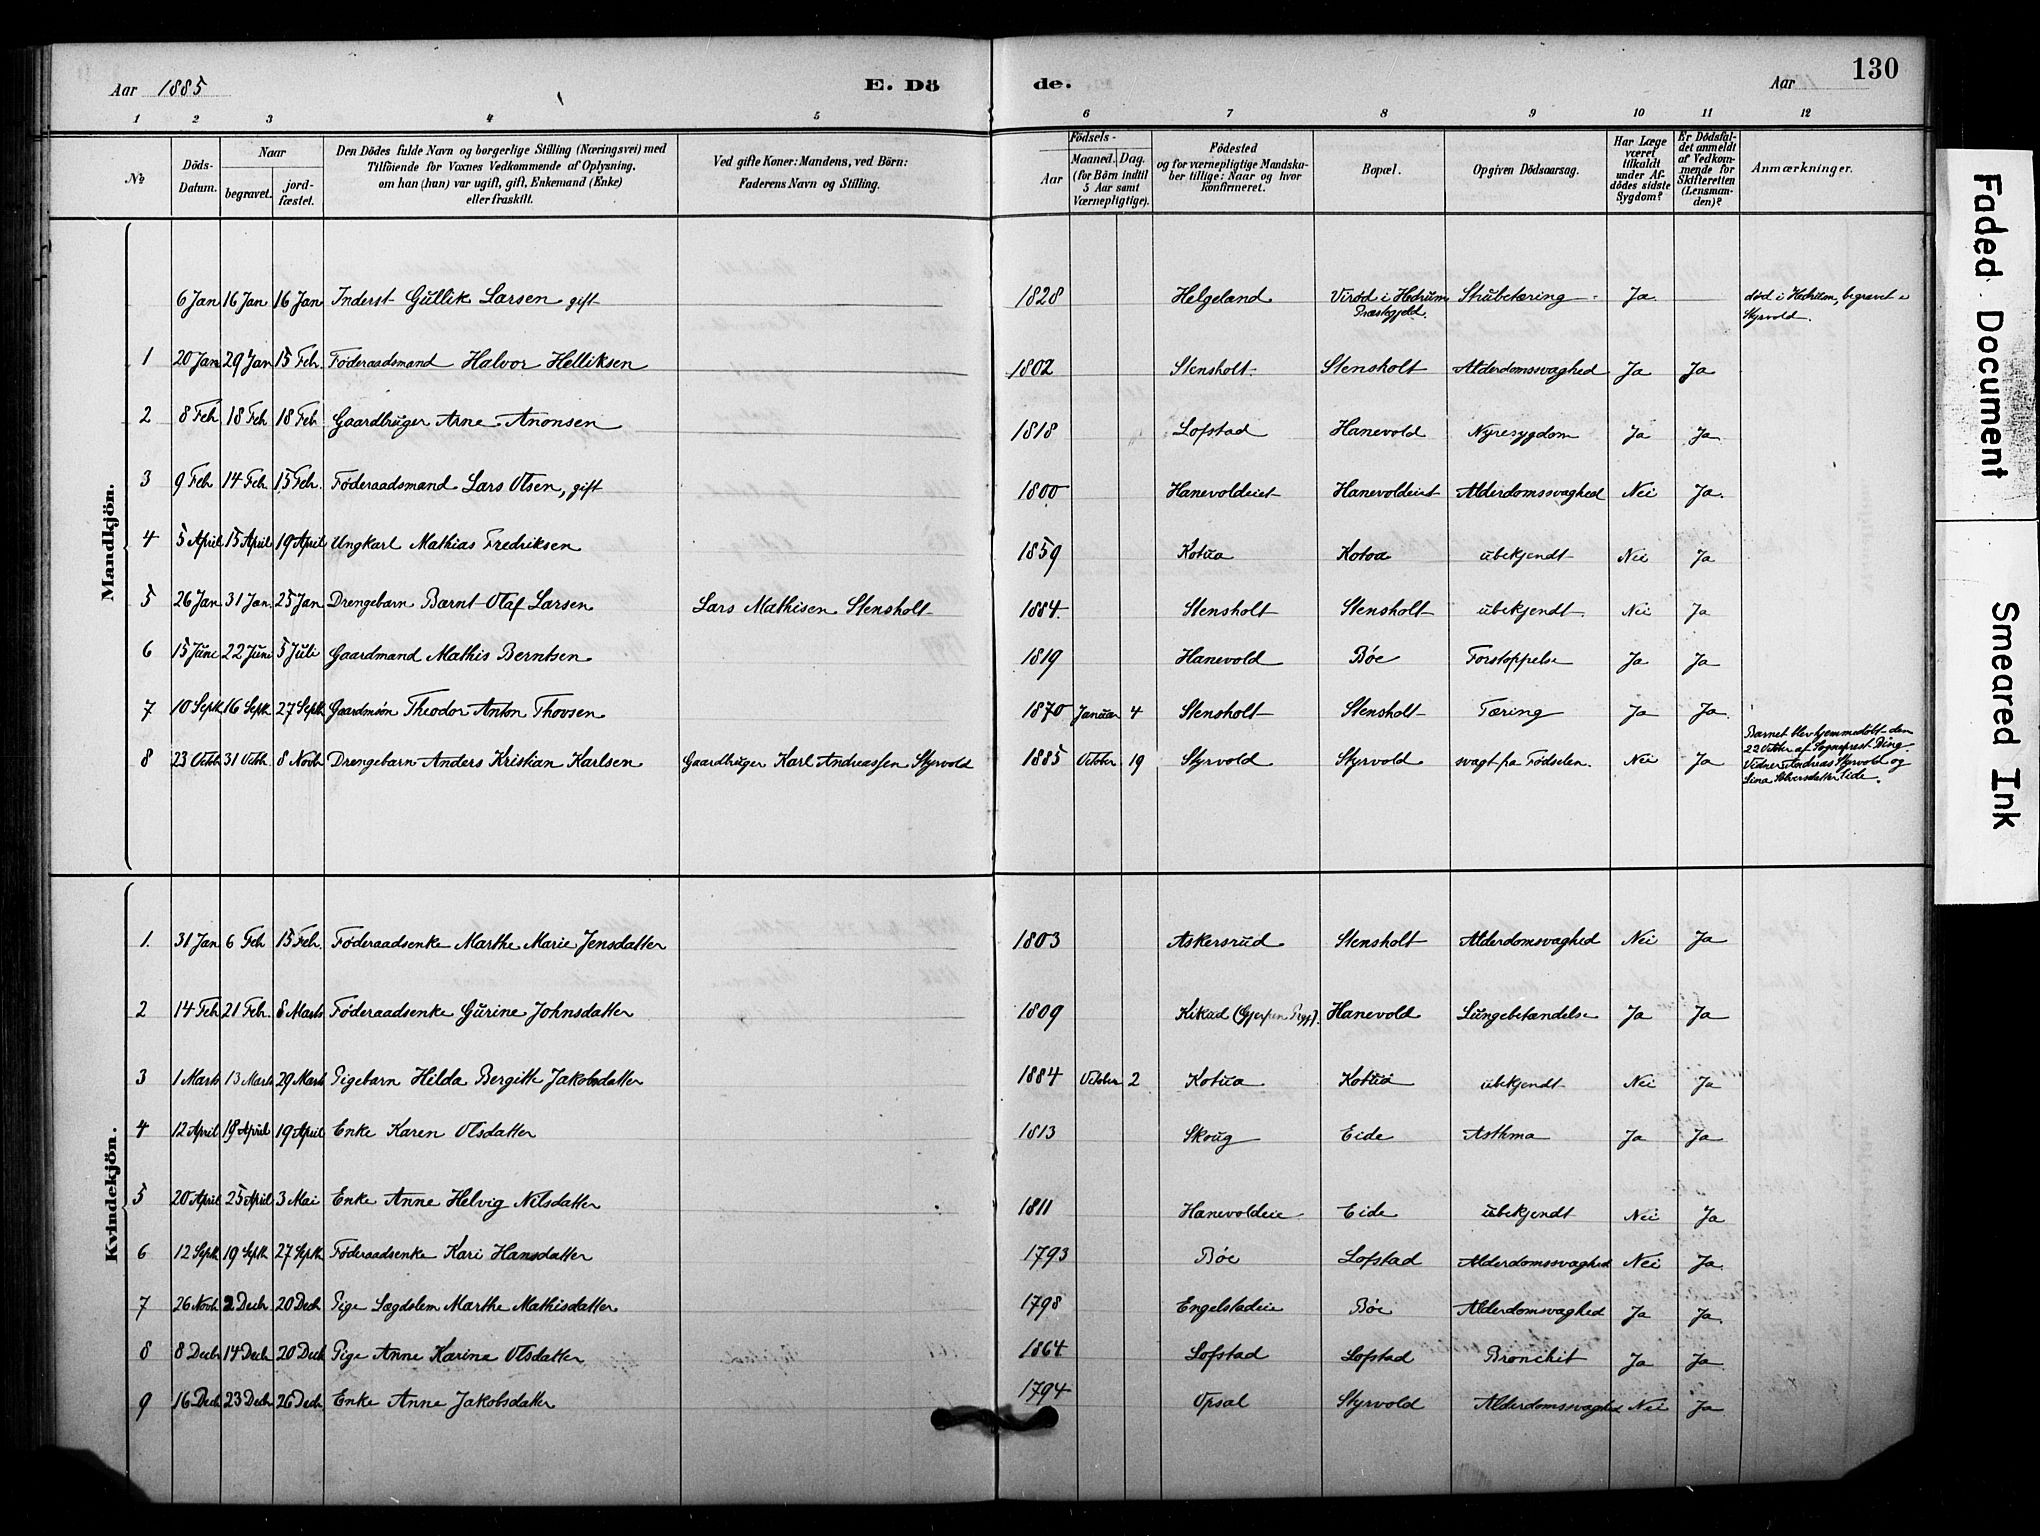 Aar 1885
E. Dö
de.
Aar
130
1 2 3 4 5 6 7 8 9 10 11 12
№
Döds-Datum.
Naar
begravet.
jord-fæstet.
Den Dödes fulde Navn og borgerlige Stilling (Næringsvei) med
Tilföiende for Voxnes Vedkommende af Oplysning,
om han (hun) var ugift, gift, Enkemand (Enke)
eller fraskilt.
Ved gifte Koner: Mandens, ved Börn:
Faderens Navn og Stilling.
Födsels-
Aar
Maaned. Dag.
(for Börn indtil
5 Aar samt
Værnepligtige).
Födested
og for værnepligtige Mandska-
ber tillige: Naar og hvor
konfirmeret.
Bopæl.
Opgiven Dödsaarsag.
Har Læge
været
tilkaldt
under Af-
dödes sidste
Sygdom?
Er Dödsfal-
det anmeldt
af Vedkom-
mende for
Skifteretten
(Lensman-
den)?
Anmærkninger.
Mandkjön.
6 Jan 16 Jan 16 Jan Inderst Gullik Larsen gift 1828 Helgeland Virød i Hedrum Præstegjeld. Strubetæring Ja død i Hedrum, begravet i Styrvold.
1 20 Jan 29 Jan 15 Feb. Føderaadsmand Halvor Helliksen 1802 Stensholt Stensholt Alderdomssvaghed Ja Ja
2 8 Feb 18 Feb 18 Feb Gaardbruger Arne Anonsen 1818 Lofstad Hanevold Nyresygdom Ja Ja
3 9 Feb 14 Feb. 15 Feb. Føderaadsmand Lars Olsen, gift 1800 Hanevoldeiet Hanevoldeiet Alderdomssvaghed Nei Ja.
4 5 April 15 April 19 April Ungkarl Mathias Fredriksen 1859 Kotua Kotua ubekjendt Nei Ja
5 26 Jan 31 Jan. 25 Jan Drengebarn Bernt Olaf Larsen Lars Mathisen Stensholt 1884. Stensholt Stensholt ubekjendt. Nei Ja
6 15 Juni 22 Juni 5 Juli Gaardmand Mathis Berntsen 1819 Hanevold Bøe Forstoppelse Ja Ja
7 10 Septb 16 Septb. 27 Septb Gaardmsøn Theodor Anton Thovsen 1870 Januar 4 Stensholt Stensholt Tæring Ja Ja.
8 23 Octb 31 Octb. 8 Novb Drengebarn Anders Kristian Karlsen Gaardbruger Karl Andreassen Styrvold 1885 October 19 Styrvold Styrvold svagt fra Fødselen. Nei Ja Barnet blev hjemmedøbt den
22 Octbr af Sogneprest Bing.
Vidner: Andreas Styrvold og
Lina Eide.
Kvindekjön.
1. 31 Jan 6 Feb 15 Feb. Føderaadsenke Marthe Marie Jensdatter 1803 Askersrud Stensholt Alderdomsvaghed Nei Ja
2 14 Feb 21 Feb. 8 Marts Føderaadsenke Gurine Johnsdatter 1809 Kikud (Gjerpen Pgj). Hanevold Lungebetændelse Ja Ja
3 1 Marts 13 Marts 29 Marts Pigebarn Hilda Bergitte Jakobsdatter 1884 October 2 Kotua Kotua ubekjendt Nei Ja
4 12 April 18 April 19 April Enke Karen Olsdatter 1813 Skoug Eide Asthma Ja Ja
5 20 April 25 April 3 Mai Enke Anne Helvig Nilsdatter 1811 Hanevoldeie Eide ubekjendt Nei Ja
6 12 Septb 19 Septb 27 Septb Føderaadsenke Kari Hansdatter 1793 Bøe Lofstad Alderdomssvaghed Nei Ja.
7 26 Novb 2 Decbr 20 Decb Pige Lægdslem Marthe Mathisdatter 1798 Engelstadeie Bøe Alderdomsvaghed Ja Ja.
8 8 Decbr 14 Decbr 20 Decb Pige Anne Karine Olsdatter 1864 Lofstad Lofstad Bronchit Ja Ja.
9 16 Decb 23 Decbr 26 Decb. Enke Anne Jakobsdatter 1794 Opsal Styrvold Alderdomssvaghed Nei Ja
Faded Document
Smeared Ink